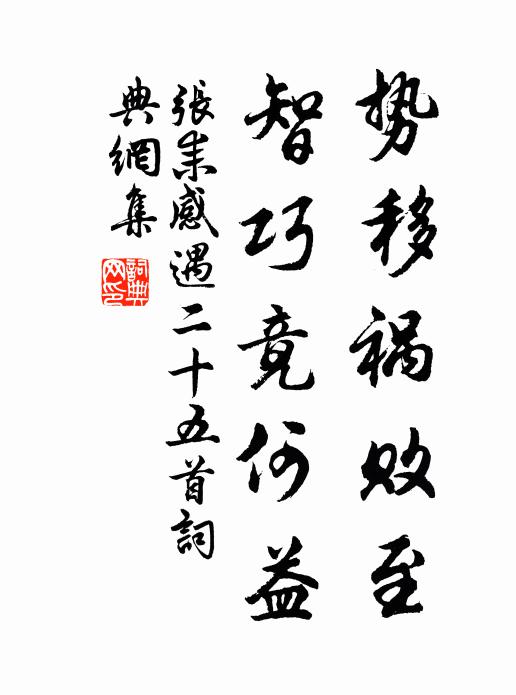 势移祸败至
智巧竟何益
張耒感遇二十五首詞
典網集
詞典网印